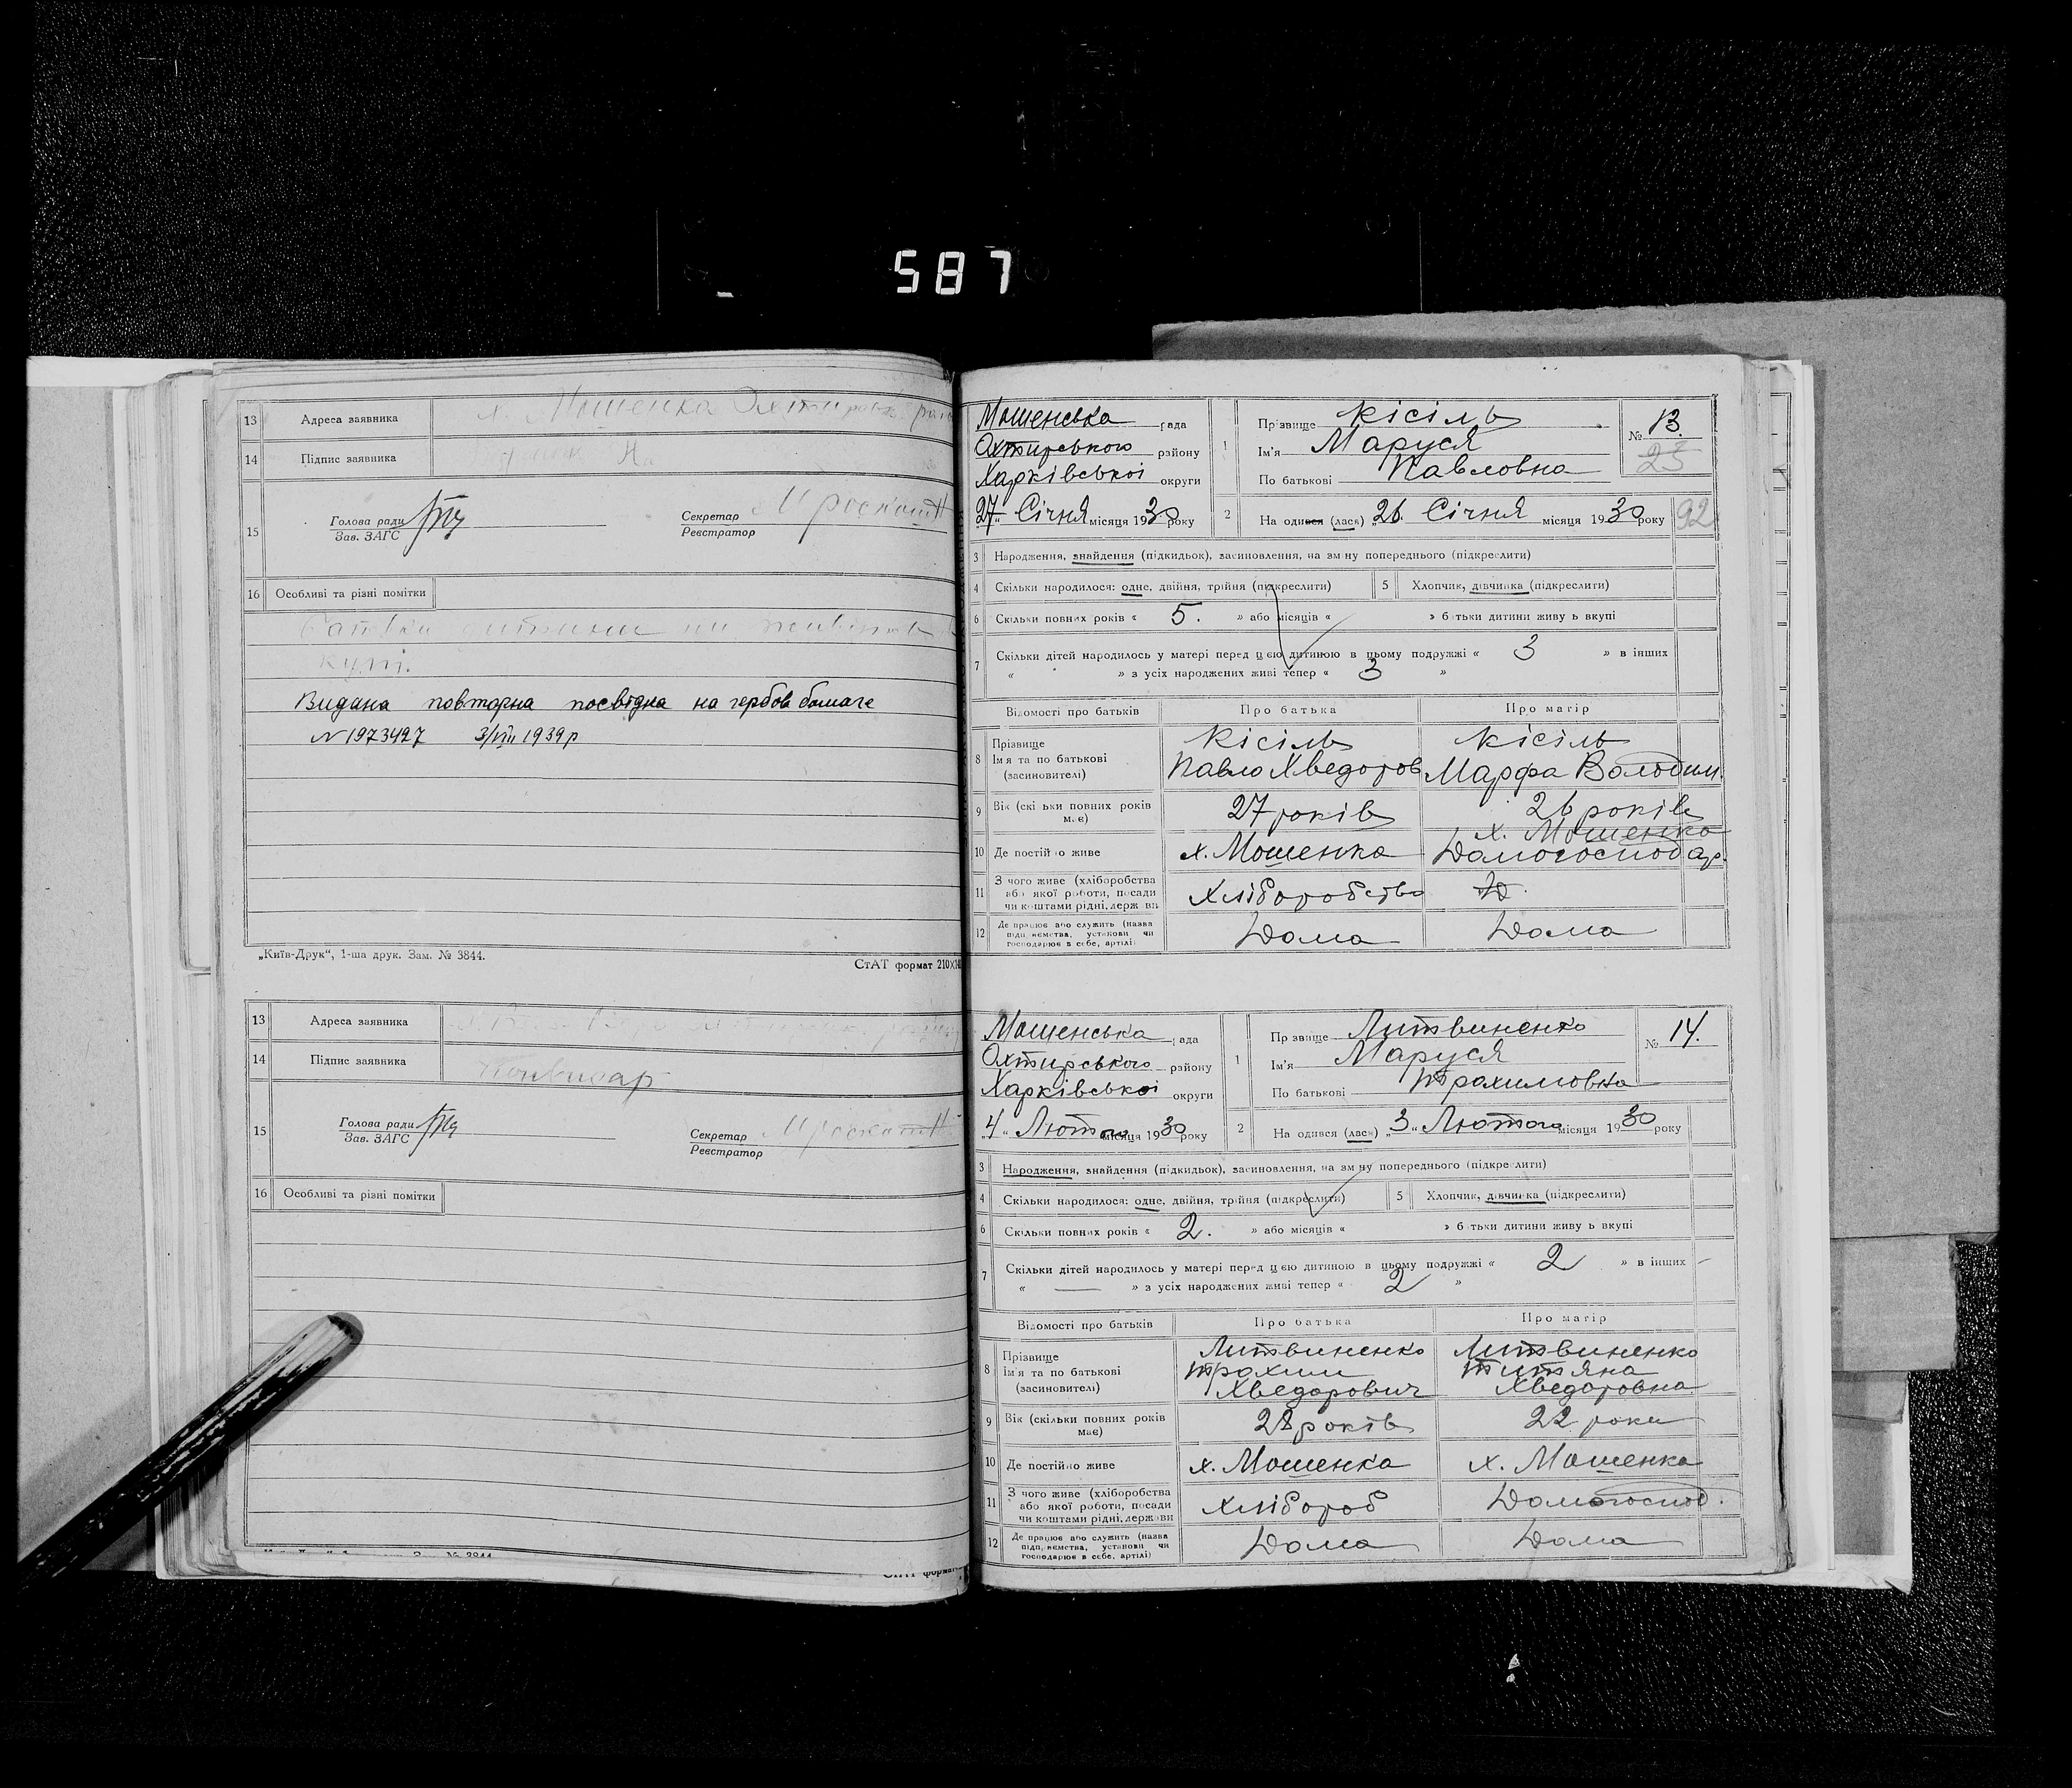 587
13 Адреса заявника х. Мошенка Охтирськ.
14 Підпис заявника
15 Голова ради
Зав. ЗАГС
Секретар
Реєстратор
16 Особливі та різні помітки
Видана повторна посвідка на гербов бомаге
N 1973427 3/VIII 1939 р
„Київ-Друк“, 1-ша друк. Зам. № 3844.
СтАТ формат 210
13 Адреса заявника
14 Підпис заявника
15 Голова ради
Зав. ЗАГС
Секретар
Реєстратор
16 Особливі та різні помітки
№ 3844
СтАТ формат
Мошенська рада
Охтирського району
Харківської округи
„27“ Січня місяця 1930 року
1 Прізвище Кісіль
Ім'я Маруся
По батькові Павловна
№ 13.
25
2 На одився (лася) „26. Січня місяця 1930 року
92
3 Народження, знайдення (підкидьок), засиновлення, на зміну попереднього (підкреслити)
4 Скільки народилося: одне, двійня, трійня (підкреслити) 5 Хлопчик, дівчинка (підкреслити)
6 Скільки повних років « 5. » або місяців « » батьки дитини живуть вкупі
7 Скільки дітей народилось у матері перед цією дитиною в цьому подружжі « 3 » в інших
« » з усіх народжених живі тепер « 3 »
Відомості про батьків Про батька Про матір
8 Прізвище Ім'я та по батькові (засиновителі)
Кісіль Кісіль
Павло Хведоров Марфа Володим.
9 Вік (скільки повних років має) 27 років 26 років
10 Де постійно живе х. Мошенка х. Мошенка
Домогосподар.
11 З чого живе (хліборобства або якої роботи, посади чи коштами рідні, держави
Хліборобство
12 Де працює або служить (назва підприємства, установи чи господарює в себе, артілі)
Дома Дома
Мошенська рада
Охтирського району
Харківської округи
„4“ Лютого місяця 1930 року
1 Прізвище Литвиненко
Ім'я Маруся
По батькові Трохимовна
№ 14.
2 На одився (лася) „3“ Лютого місяця 1930 року
3 Народження, знайдення (підкидьок), засиновлення, на зміну попереднього (підкреслити)
4 Скільки народилося: одне, двійня, трійня (підкреслити) 5 Хлопчик, дівчинка (підкреслити)
6 Скільки повних років « 2. » або місяців « » батьки дитини живуть вкупі
7 Скільки дітей народилось у матері перед цією дитиною в цьому подружжі « 2 » в інших
« — » з усіх народжених живі тепер « 2 »
Відомості про батьків Про батька Про матір
8 Прізвище Ім'я та по батькові (засиновителі)
Литвиненко Литвиненко
Трохим Титяна
Хведорович Хведоровна
9 Вік (скільки повних років має) 28 років 22 роки
10 Де постійно живе х. Мошенка х. Мошенка
11 З чого живе (хліборобства або якої роботи, посади чи коштами рідні, держави
Хлібороб Домогоспод.
12 Де працює або служить (назва підприємства, установи чи господарює в себе, артілі)
Дома Дома